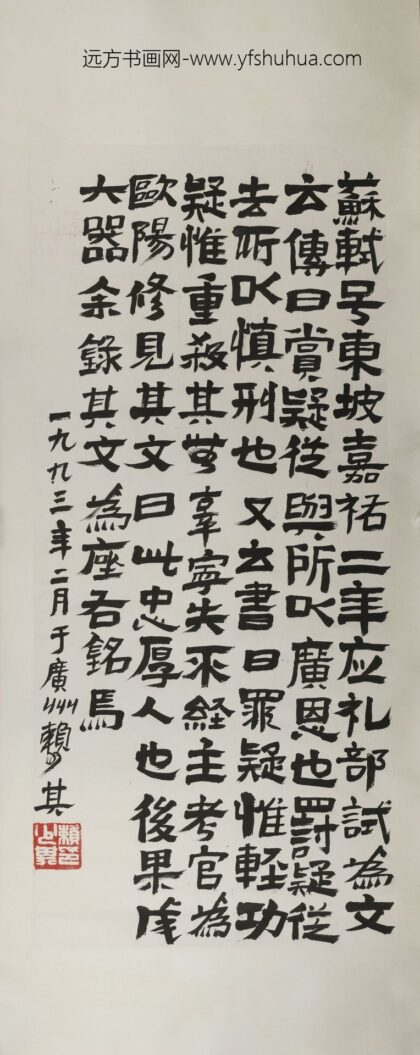 远方书画网-www.yfshuhua.com
蘇軾号東坡嘉祐二年应礼部試為文
云傳曰賞疑從與所以廣恩也罰疑從
去所以慎刑也又云書曰罪疑惟輕功
疑惟重殺其無辜寧失不経主考官為
歐陽修見其文曰此忠厚人也後果成
大器余錄其文為座右銘焉
一九九三年二月于廣州賴少其